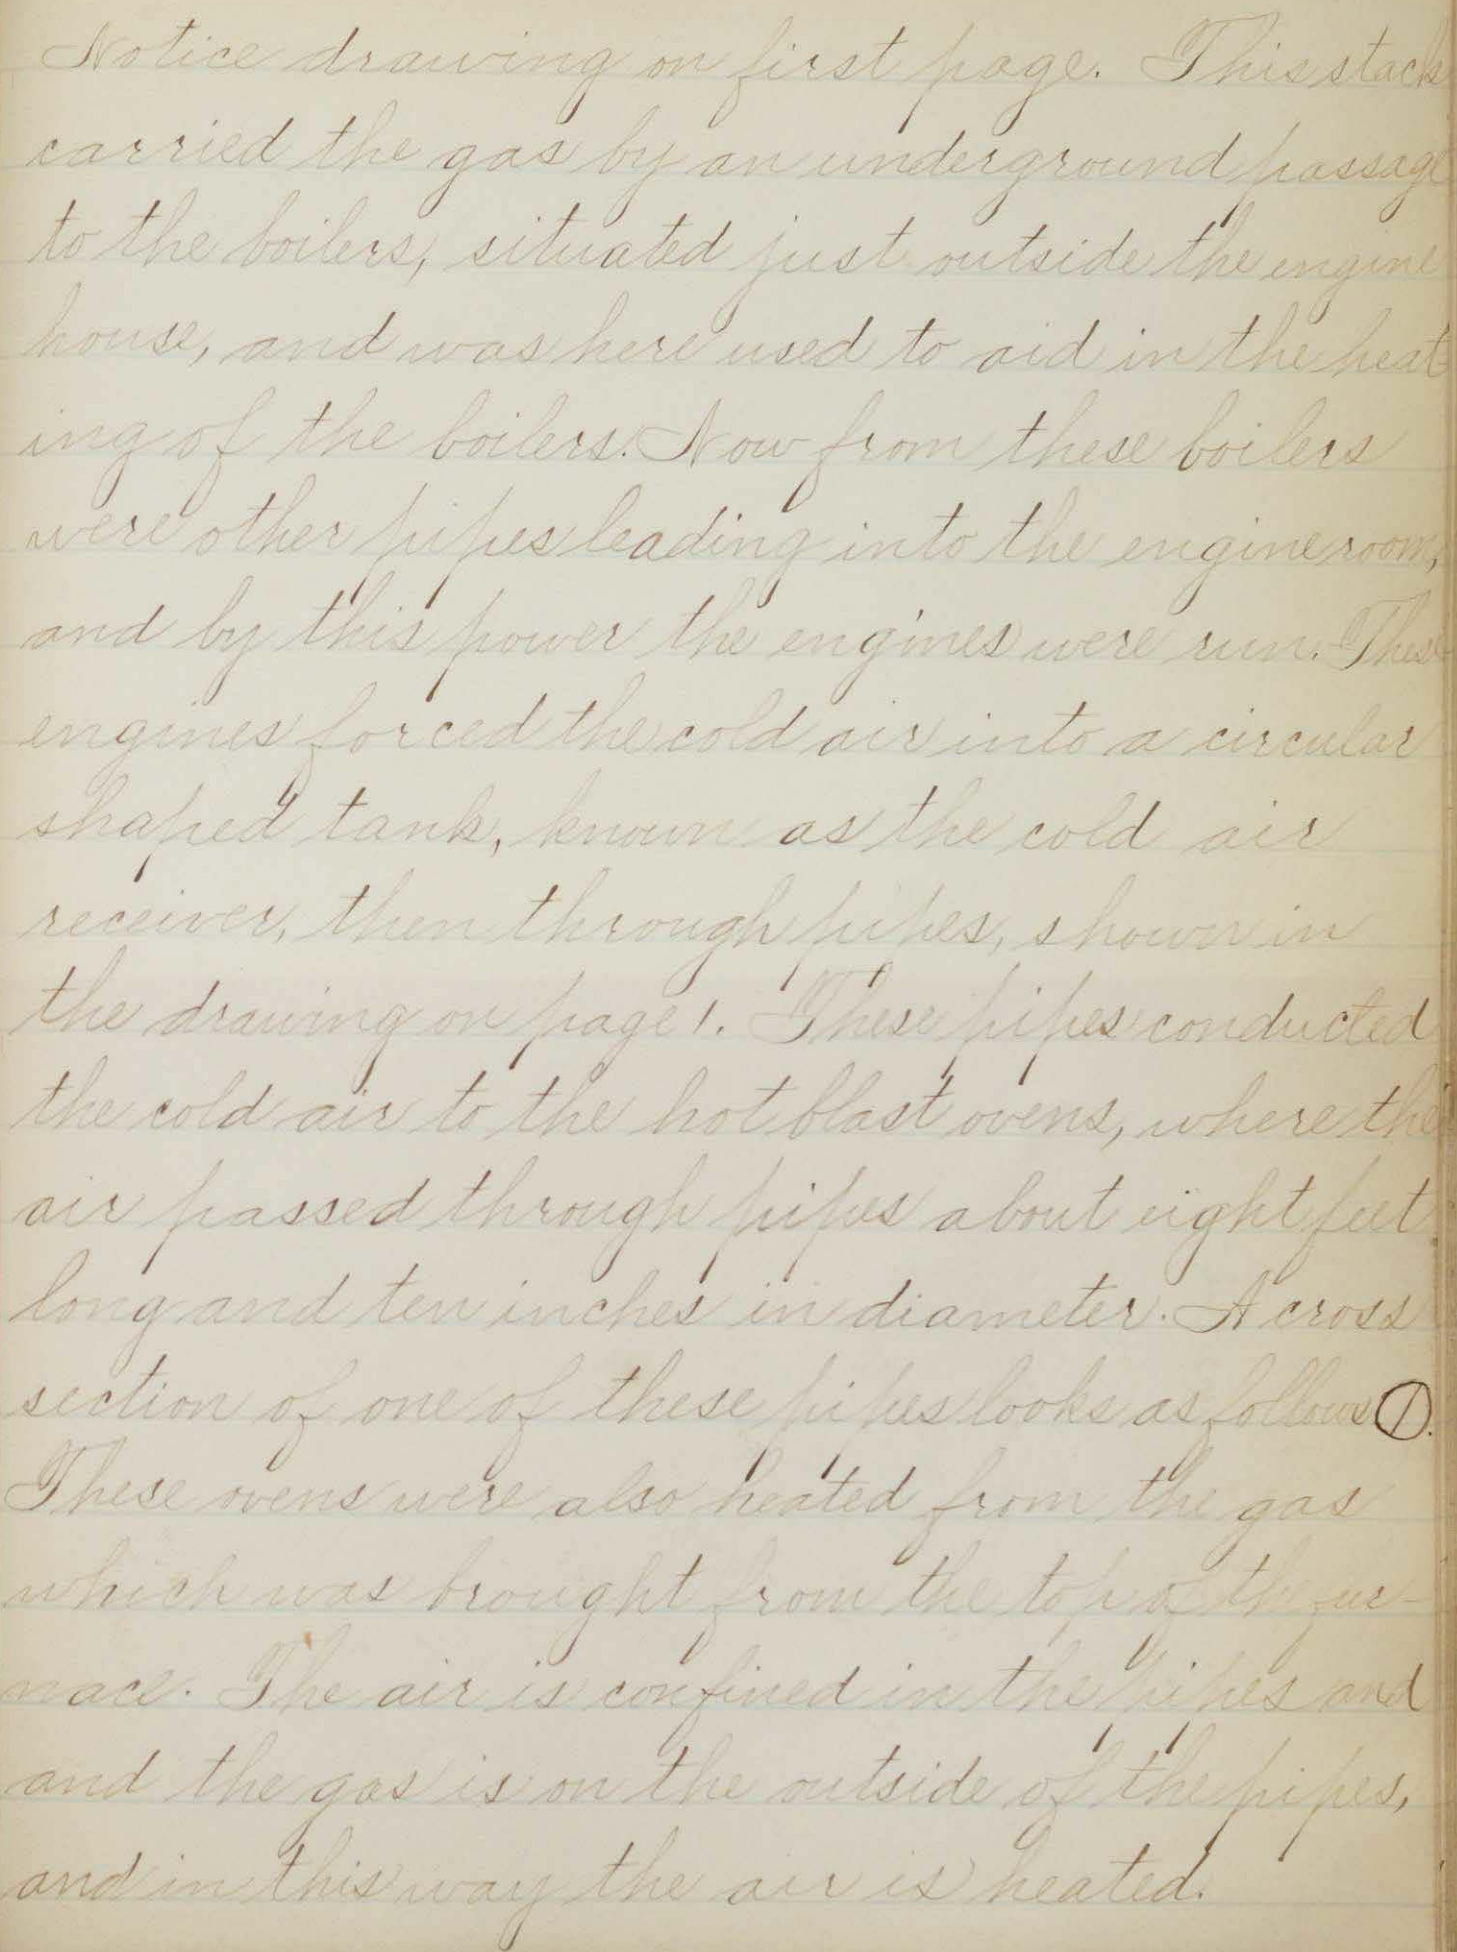 Notice drawing on first page. This stack
carried the gas by an underground passage
to the boilers, situated just outside the engine
house, and was here used to aid in the heat
ing of the boilers. Now from these boilers
were other pipes leading into the engine room,
and by this power the engines were run. These
engines forced the cold air into a circular
shaped tank, known as the cold air
receiver, then through pipes, shown in
the drawing on page 1. These pipes conducted
the cold air to the hot blast ovens, where the
air passed through pipes about eight feet
long and ten inches in diameter. A cross
section of one of these pipes looks as follows .
These ovens were also heated from the gas
which was brought from the top of the fur-
nace. The air is confined in the pipes and
and the gas is on the outside of the pipes,
and in this way the air is heated.